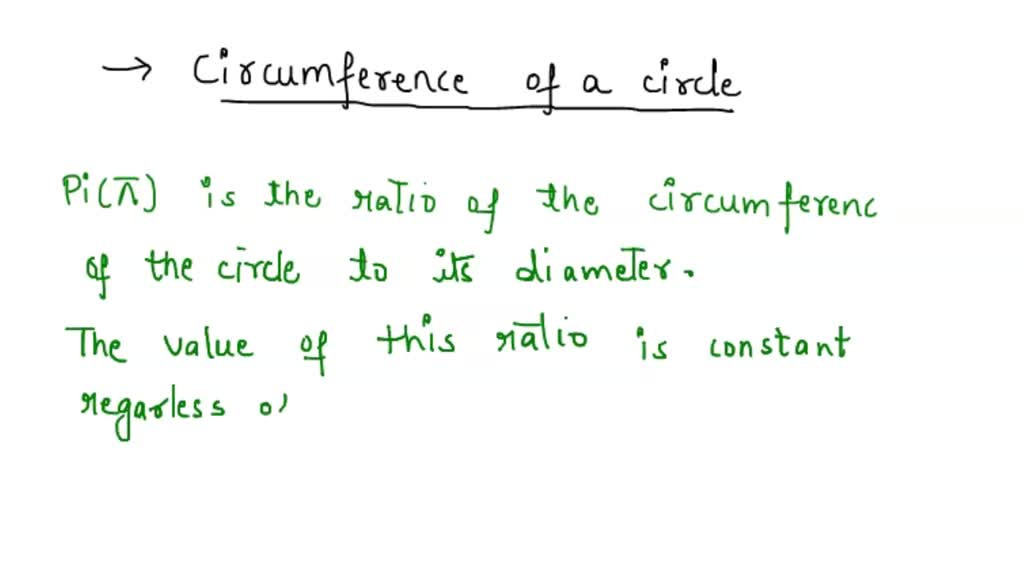 → Circumference of a circle
Pi(π) is the ratio of the circumferenc
of the circle to its diameter.
The value of this ratio is constant
regarless o